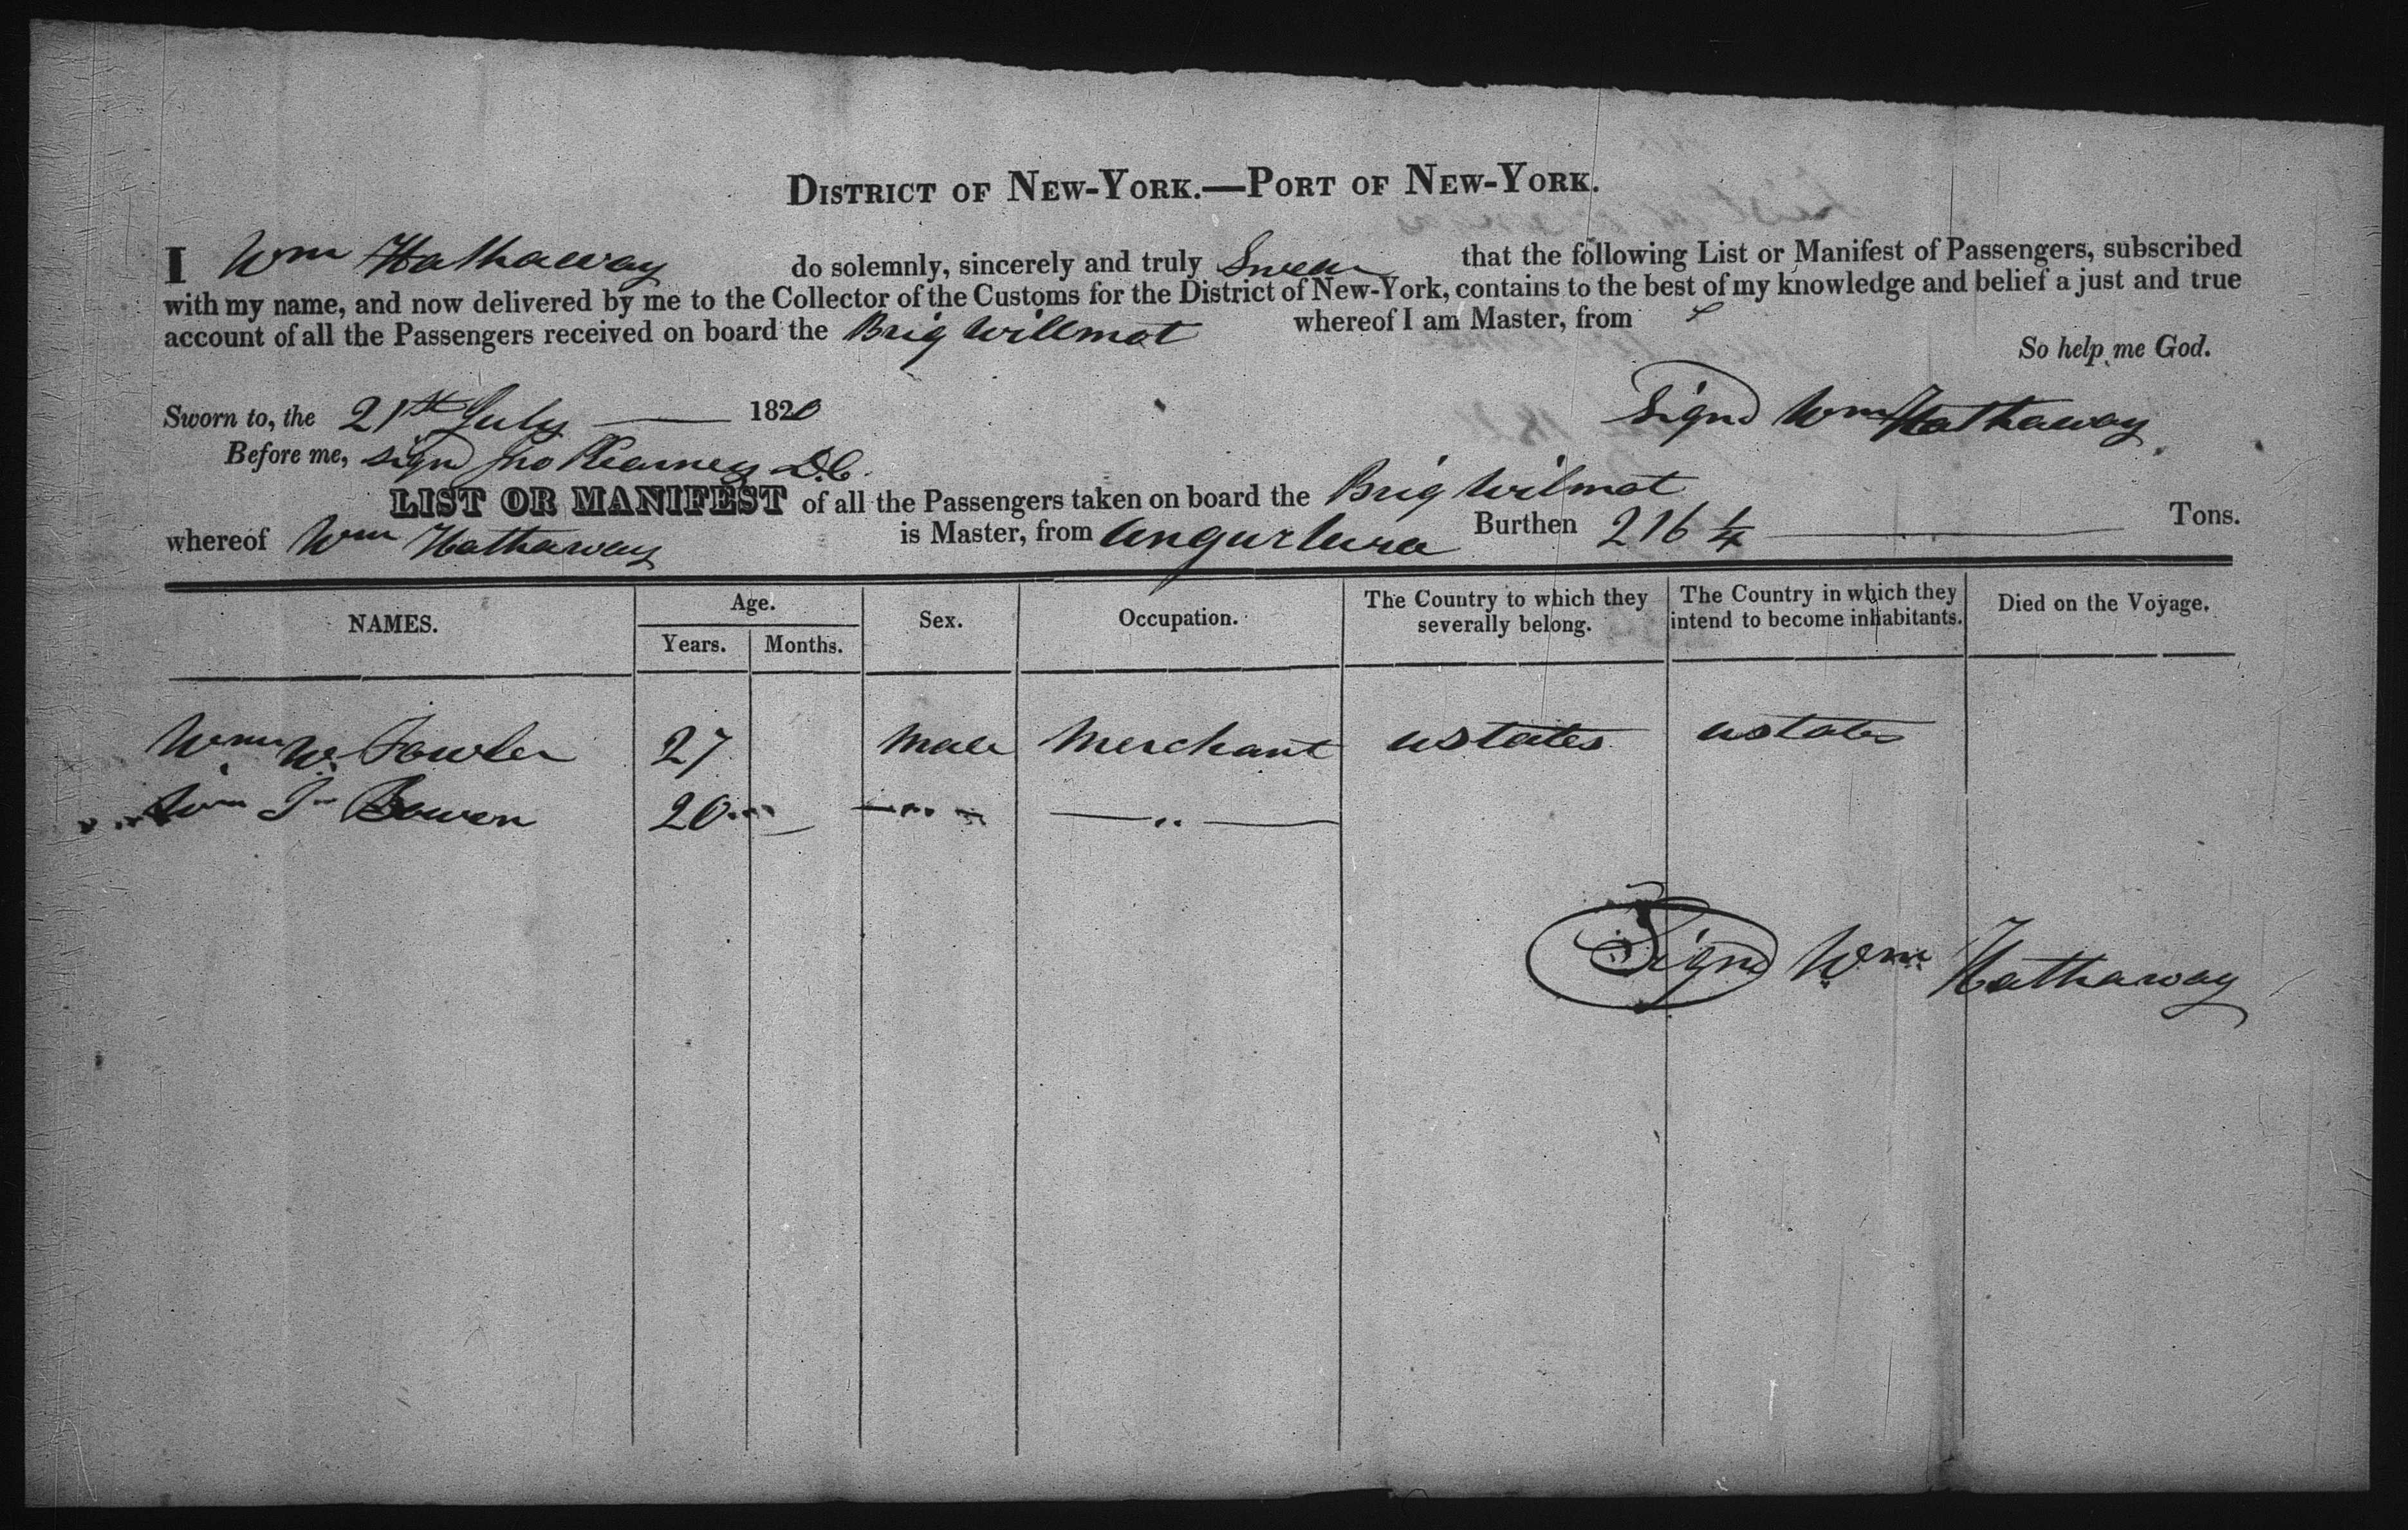 DISTRICT OF NEW-YORK.—PORT OF NEW-YORK.
I Wm Hathaway do solemnly, sincerely and truly Swear that the following List or Manifest of Passengers, subscribed
with my name, and now delivered by me to the Collector of the Customs for the District of New-York, contains to the best of my knowledge and belief a just and true
account of all the Passengers received on board the Brig Willmot whereof I am Master, from
So help me God.
Sworn to, the 21st July — 1820 Signd Wm Hathaway
Before me, signd Jno Kearney D.C.
LIST OR MANIFEST of all the Passengers taken on board the Brig Wilmot
whereof Wm Hathaway is Master, from Burthen 216 1/4 — Tons.
NAMES. Age. Sex. Occupation. The Country to which they severally belong. The Country in which they intend to become inhabitants. Died on the Voyage.
Years. Months.
Wm W. Fowler 27 Male Merchant ustates ustates
Wm Bowen 20 — „ — — „ —
Signd Wm Hathaway